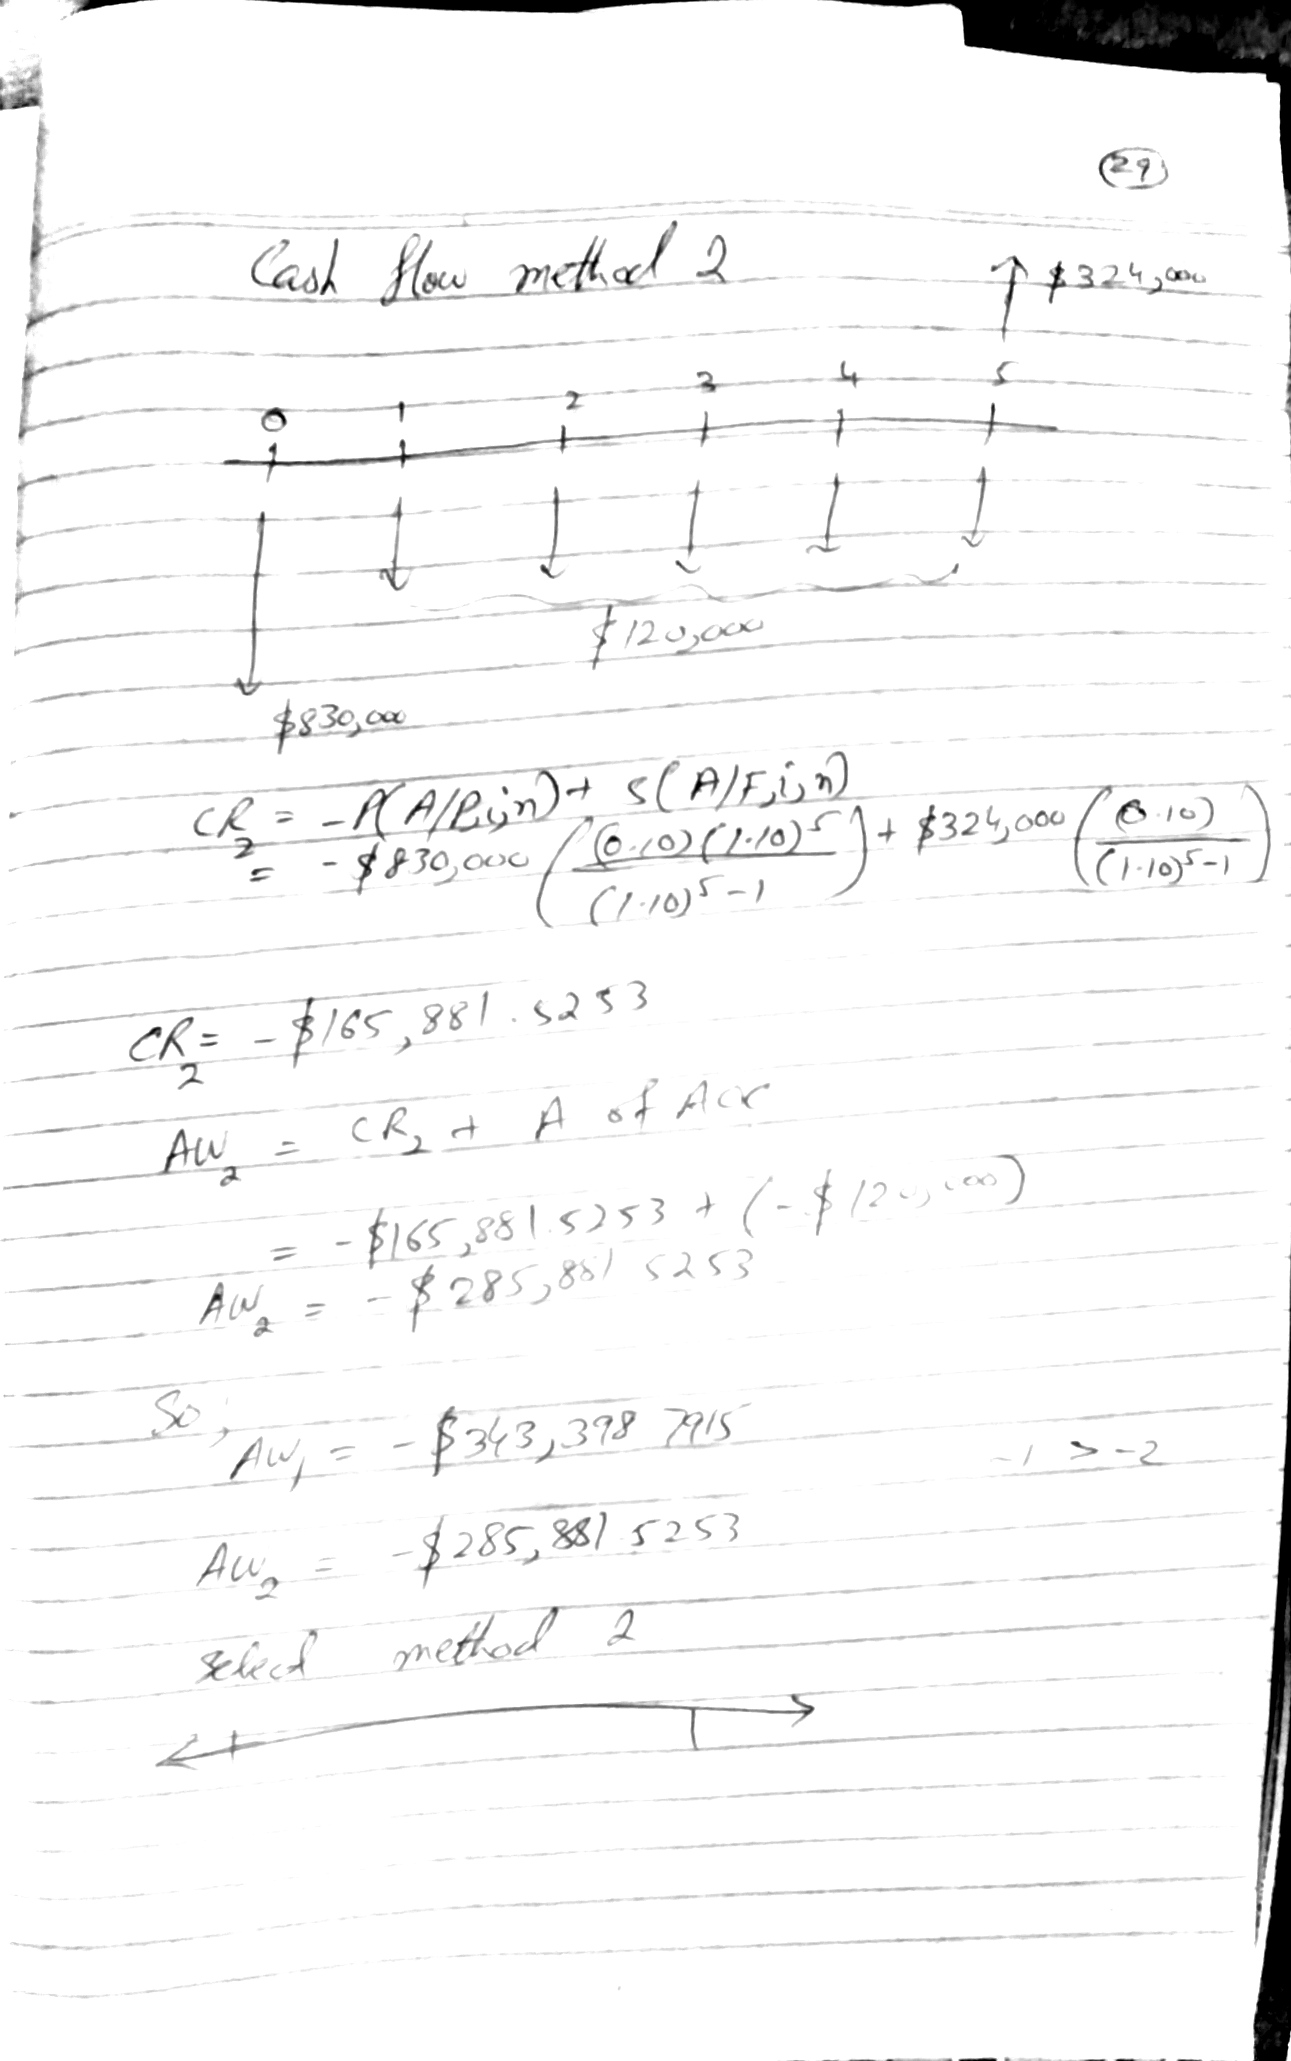 29
Cash flow method 2
$324,000
0 1 2 3 4 5
$120,000
$830,000
CR2 = -P(A/P,i,n) + S(A/F,i,n)
= -$830,000 ((0.10)(1.10)^5 / (1.10)^5-1) + $324,000 ((0.10) / (1.10)^5-1)
CR2 = -$165,881.5253
AW2 = CR2 + A of AOC
= -$165,881.5253 + (-$120,000)
AW2 = -$285,881 5253
So,
AW1 = -$343,398 7915
-1 > -2
AW2 = -$285,881 5253
select method 2